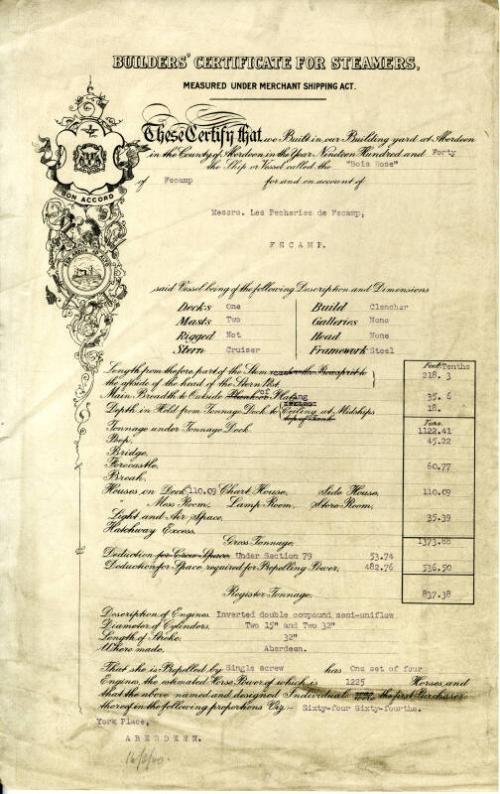 BUILDERS' CERTIFICATE FOR STEAMERS.
MEASURED UNDER MERCHANT SHIPPING ACT.
These Certify that we Built in our Building yard at Aberdeen
in the County of Aberdeen in the Year Nineteen Hundred and Forty
the Ship or Vessel called the "Bois Rose"
of Fecamp for and on account of
BON ACCORD
Messrs. Les Pecheries de Fecamp,
FECAMP.
said Vessel being of the following Description and Dimensions
Decks One Build Clencher
Masts Two Galleries None
Rigged Not Head None
Stern Cruiser Framework Steel
Feet Tenths
Length from the fore part of the Stem under the Bowsprit to
the aftside of the head of the Stern Post. 218. 3
Main Breadth to Outside Plank of Plating 35. 6
Depth in Hold from Tonnage Deck to Ceiling at Midships 18.
Tons.
Tonnage under Tonnage Deck. 1122.41
Poop. 45.22
Bridge.
Forecastle. 60.77
Break.
Houses on Deck 110.09 Chart House, Side House, 110.09
" Mess Room, Lamp Room, Store Room,
Light and Air Space. 35.39
Hatchway Excess.
Gross Tonnage. 1373.88
Deduction for Crew Space Under Section 79 53.74
Deduction for Space required for Propelling Power, 482.76 536.50
Register Tonnage. 837.38
Description of Engines. Inverted double compound semi-uniflow
Diameter of Cylinders. Two 15" and Two 32"
Length of Stroke. 32"
Where made, Aberdeen.
That she is Propelled by Single screw has One set of four
Engines, the estimated Horse Power of which is 1225 Horses, and
that the above named and designed Individuals the first Purchasers
thereof in the following proportions Viz:- Sixty-four Sixty-fourths.
York Place,
ABERDEEN.